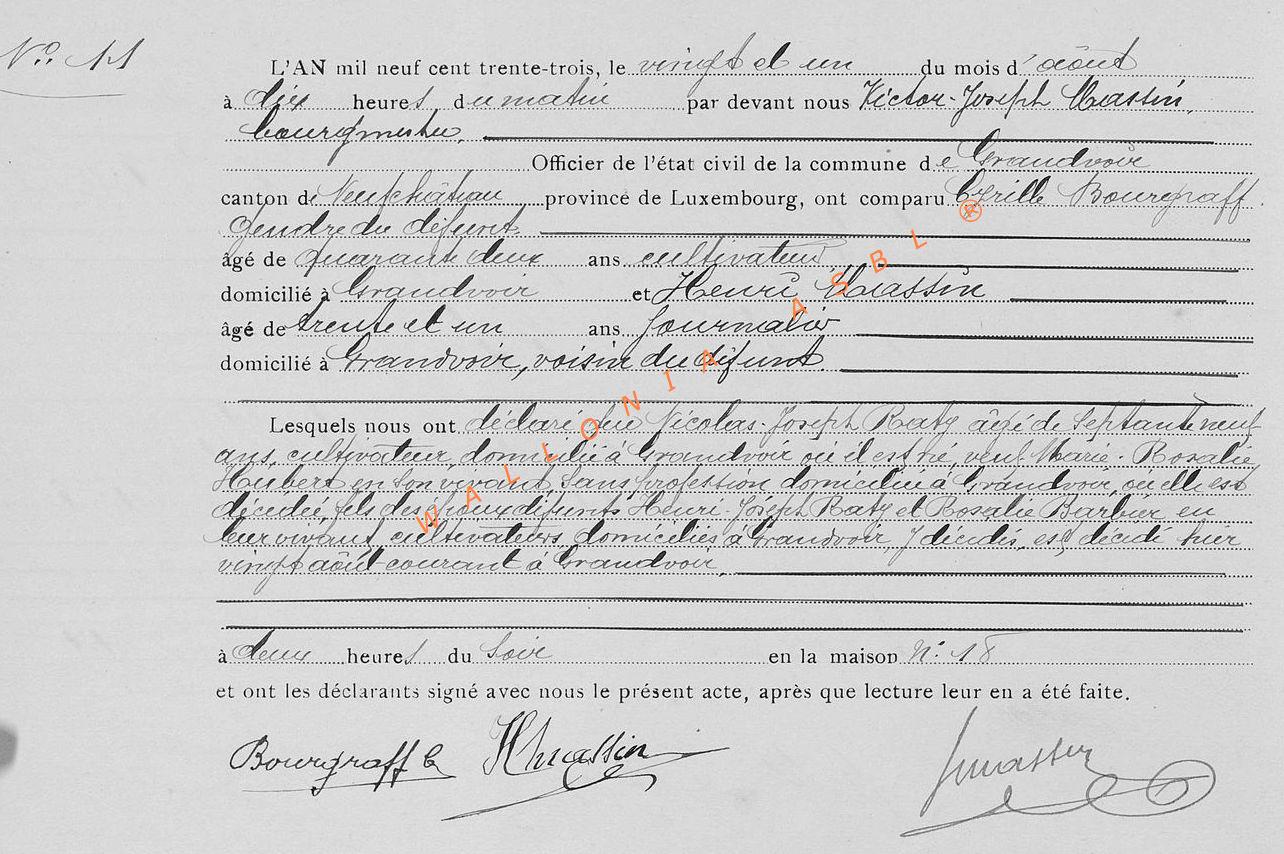 No 11
L'AN mil neuf cent trente-trois, le vingt et un du mois d'août
à dix heures du matin par devant nous Victor-Joseph Massin,
bourgmestre,
Officier de l'état civil de la commune de Grandvoir
canton de Neufchâteau province de Luxembourg, ont comparu Cyrille Bourgraff
gendre du défunt
âgé de quarante deux ans cultivateur
domicilié à Grandvoir et Henri Massin
âgé de trente et un ans journalier
domicilié à Grandvoir, voisin du défunt.
Lesquels nous ont déclaré que Nicolas-Joseph Raty âgé de septante neuf
ans, cultivateur, domicilié à Grandvoir où il est né, veuf Marie-Rosalie
Hubert en son vivant sans profession domiciliée à Grandvoir, où elle est
décédée, fils des époux défunts Henri-Joseph Raty et Rosalie Barbier, en
leur vivant, cultivateurs, domiciliés à Grandvoir, y décédés, est décédé hier
vingt août courant à Grandvoir,
à deux heures du soir en la maison N° 18
et ont les déclarants signé avec nous le présent acte, après que lecture leur en a été faite.
Bourgraff C HMassin JMassin
WALLONIA ASBL ®